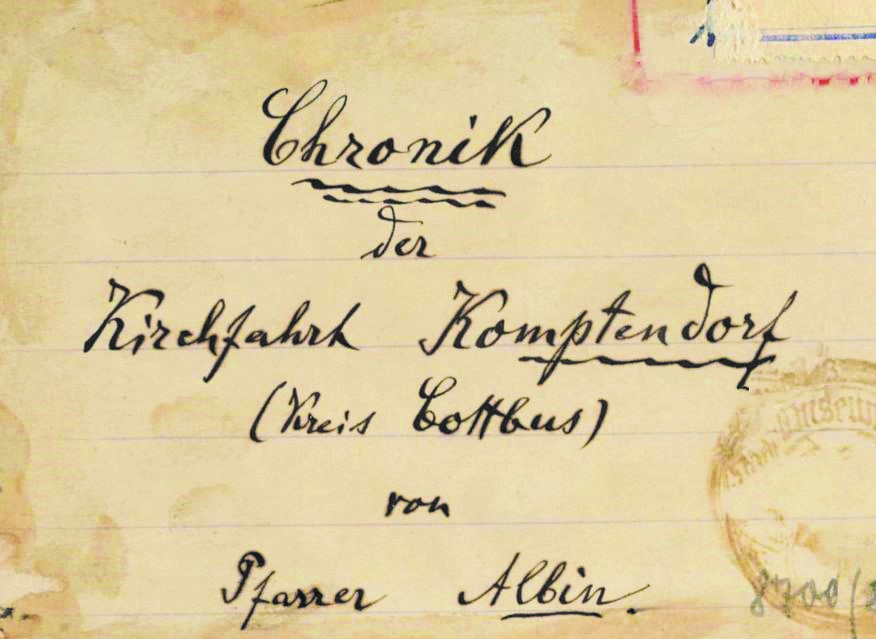 Chronik
der
Kirchfahrt Komptendorf
(Kreis Cottbus)
von
Pfarrer Albin.
Museum
8700/